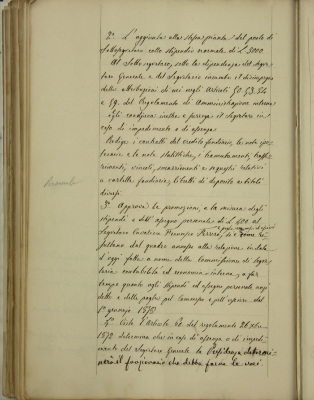 2°. L'aggiunta alla stessa pianta del posto di
Sottosegretario collo stipendio normale di L. 3000.
Al Sotto segretario, sotto la dipendenza del Segre-
tario Generale e del Segretario incombe il disimpegno
delle attribuzioni di cui negli Articoli 50. 53. 54
e 59. del Regolamento di Amministrazione interna
Egli coadjuva inoltre e surroga il Segretario in
caso di impedimento o di assenza.
Redige i contratti del credito fondiario, le note ipo-
tecarie e le note statistiche, i tramutamenti,
vincoli, smarrimenti e relativi
a cartelle fondiarie, libretti di deposito e titoli
diversi.
3°. Approva le promozioni, e la misura degli
stipendi e dell'assegno personale di L. 400 al
Segretario Cavaliere Ferrero, di
dal quadro annesso alla relazione in data
d'oggi fatta a nome della Commissione di Segre-
teria, contabilità ed economia interna, a far
tempo quanto agli stipendi ed assegno personale
detto e delle paghe pei Commessi e pell'usciere dal
1° gennajo 1878.
4°. Visto l'Articolo 60. del regolamento 26
1872 determina che in caso di assenza o di impedi-
mento del Segretario Generale la Presidenza determi-
nerà il funzionario che debba farne le veci.